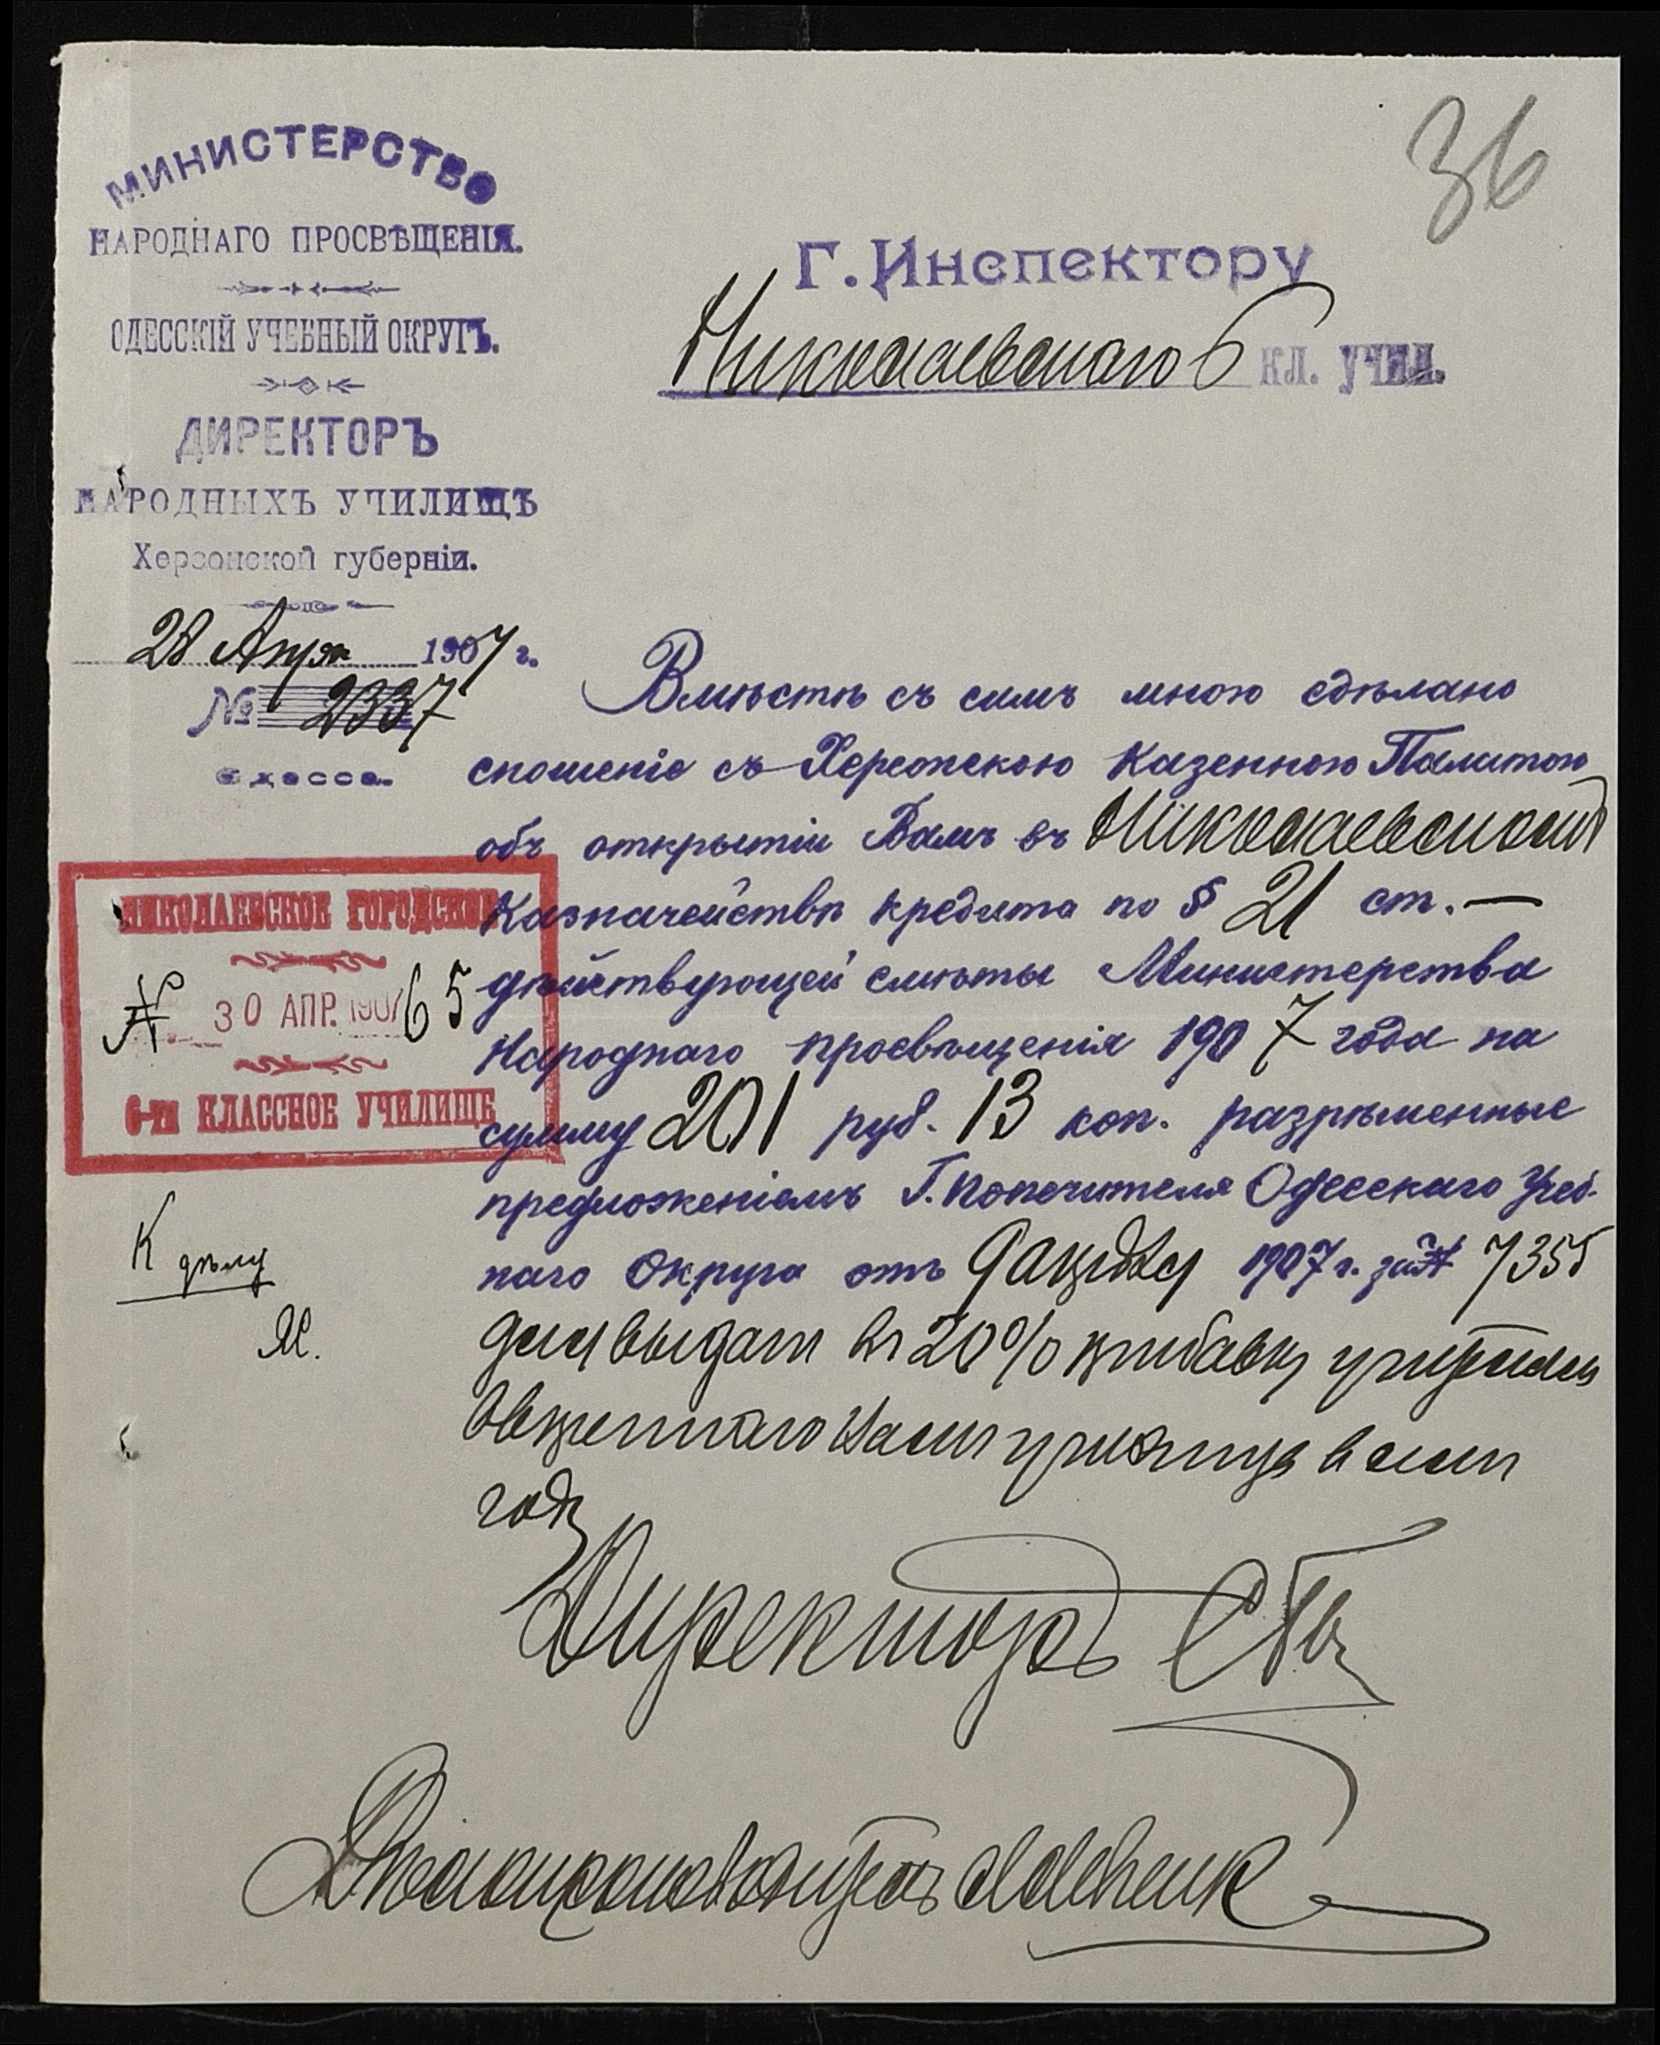 36
МИНИСТЕРСТВО
НАРОДНАГО ПРОСВѢЩЕНІЯ.
ОДЕССКІЙ УЧЕБНЫЙ ОКРУГЪ.
ДИРЕКТОРЪ
НАРОДНЫХЪ УЧИЛИЩЪ
Херсонской губерніи.
28 Апр 1907 г.
№ 2337
Одесса.
Г. Инспектору
Николаевскаго 6 кл. учил.
Вмѣстѣ съ симъ мною сдѣлано
сношеніе съ Херсонскою Казенною Палатою
объ открытіи Вамъ въ Николаевскомъ
Казначействѣ кредита по § 21 ст. —
дѣйствующей смѣты Министерства
Народнаго просвѣщенія 1907 года на
сумму 201 руб. 13 коп. разрѣшенные
предложеніемъ Г. Попечителя Одесскаго Учеб-
наго Округа отъ 9 1907 г. за № 7355
для выдачи 20% прибавки
ввѣреннаго Вамъ училища въ семъ
году
Директоръ
Дѣлопроизводитель
НИКОЛАЕВСКОЕ ГОРОДСКОЕ
№ 30 АПР. 1907 65
6-ти КЛАССНОЕ УЧИЛИЩЕ
К дѣлу